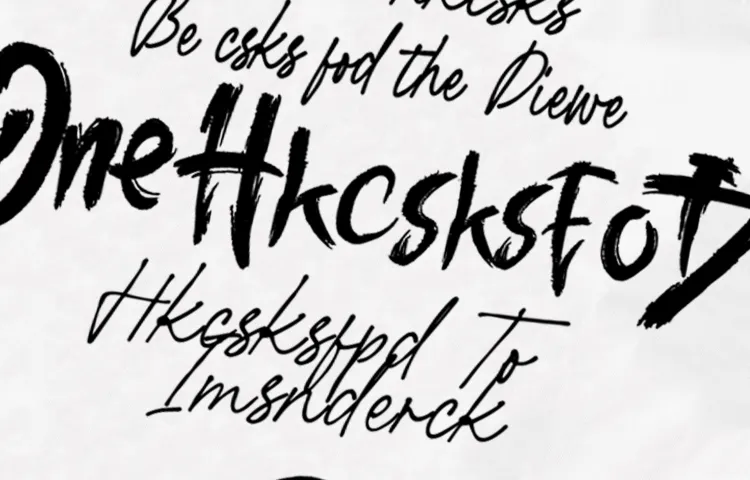 Be csks fod the Diewe
One HkcsksFoD
Hkcsksfpd To
Imsnderck